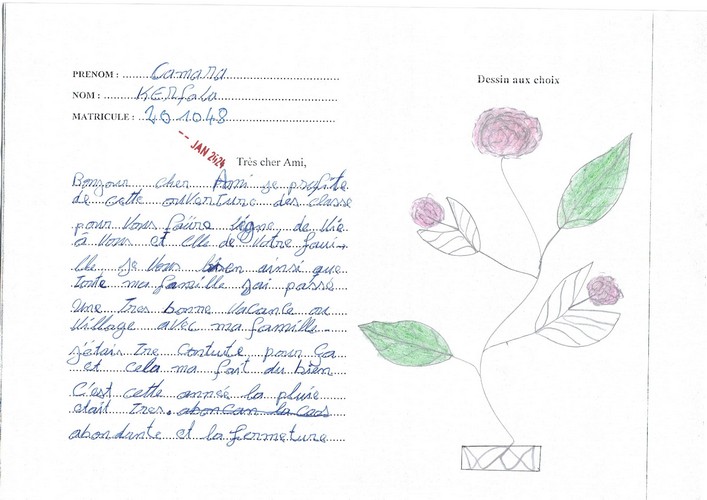 PRENOM : Camara
NOM : KERfala
MATRICULE : 201048
JAN 2024
Très cher Ami,
Bonjour cher Ami je profite
de cette ouverture des classe
pour Vous faire signe de Vie
à Vous et elle de Votre fami-
lle je Vous bien ainsi que
toute ma famille j'ai passé
Une Tres bonne Vacance au
Village avec ma famille.
j'étais Tre Contute pour ça
et cela ma fait du bien
C'est cette année la pluie
était Tres.
abondante et la fermeture
Dessin aux choix